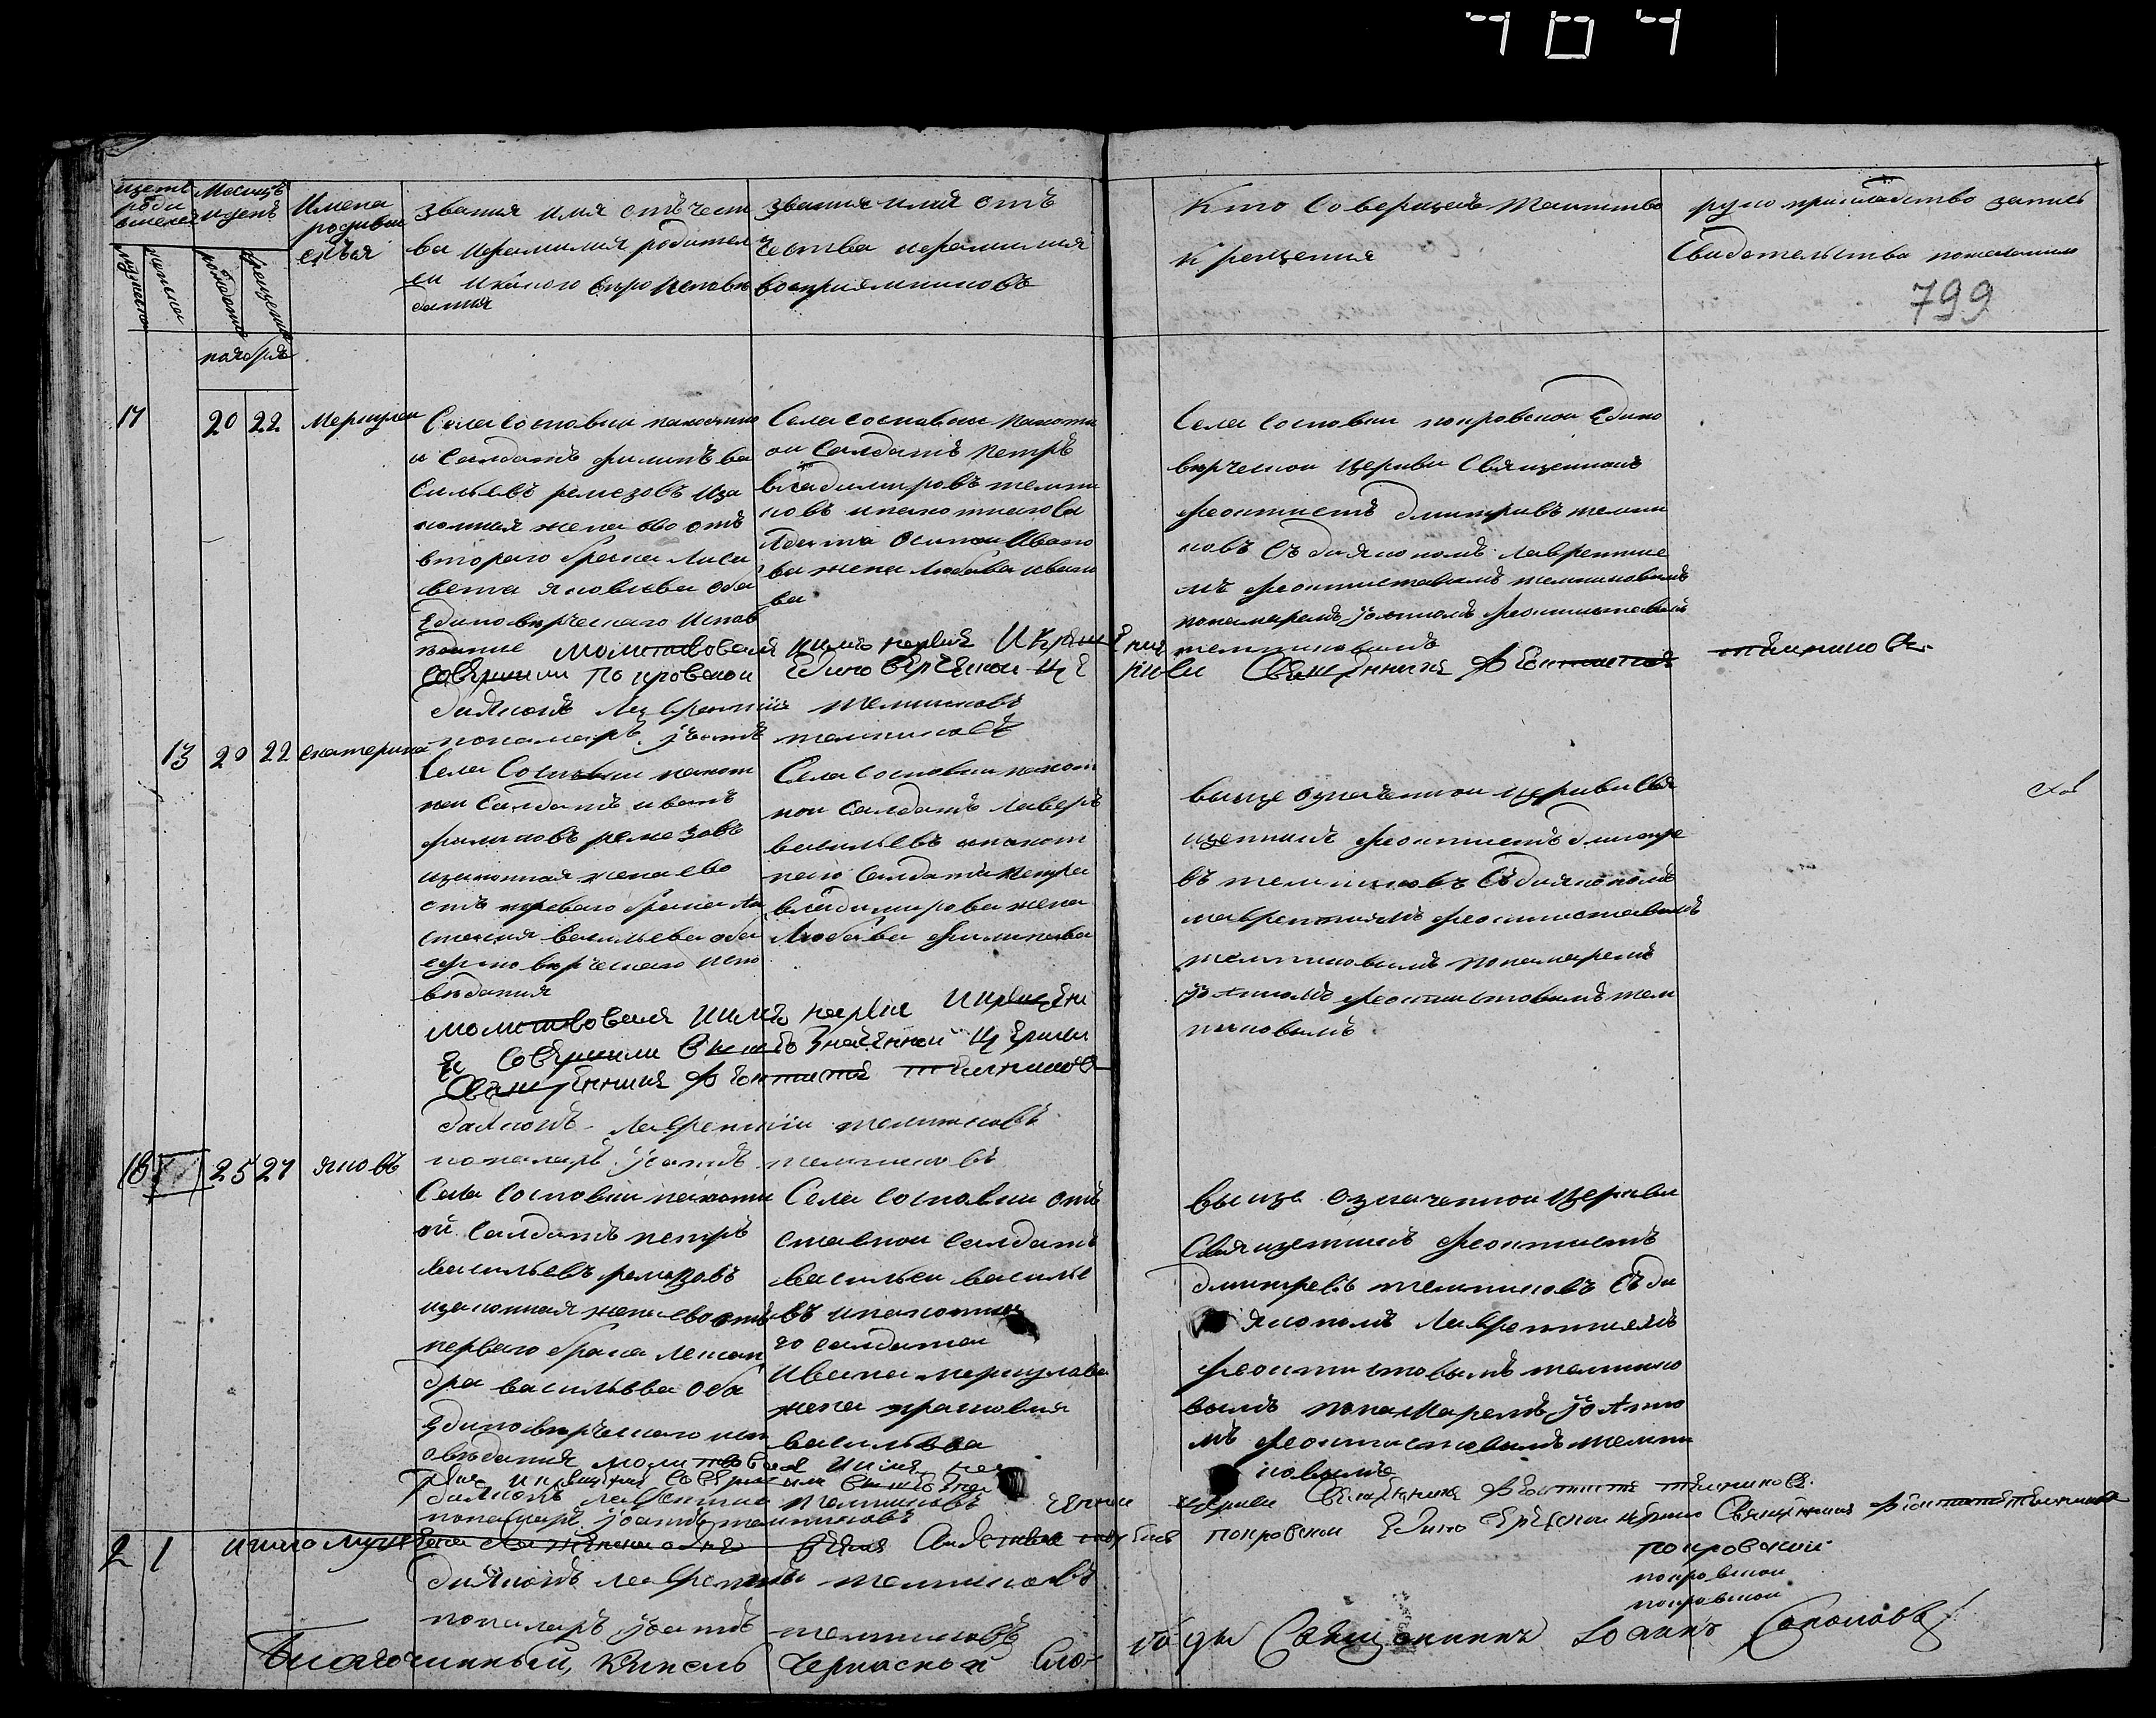 704
щетъ роди вшехся
Месицъ иденъ
Имена родивши ехъся
звания имя отъчест
ва ифамилия родител
еи икакого вероисповъ
дания
звания имя отъ
чества ифамилия
восприемниковъ
Кто Совершалъ таинство
крещения
рукоприкладство запись
Свидетельства пожеланию
799
мужеска
женска
рождения
крещения
ноября
17
20 22
Меркулеи
Села Сосновки пахотно
и Салдатъ филипъ ва
сильевъ ремезовъ иза
конная жена ево отъ
втораго брака Лиса
вета яковлева оба
Единоверческаго Испов
едание
Села сосновки пахотн
ои Салдатъ Петръ
владимировъ темни
ковъ ипахотнаго са
лдата Осипа Ивано
ва жена Любава ивано
ва
Села Сосновки покровскои Едино
верческои церкви Священникъ
феоктистъ дмитривъ темни
ковъ Съ дияконом лаврентие
мъ феоктистовымъ темниковымъ
понамаремъ иоанномъ феоктистовымъ
темниковымъ
молитвовали имя нарекли И Крещение
совершили Покровскои Единоверческои це ркви Священникъ Феоктистъ темниковъ
дияконъ Лаврентии темниковъ
понамарь иоаннъ темниковъ
13 20 22
екатерина
Села Сосновки пахот
нои Салдатъ иванъ
филиповъ ремезовъ
изаконная жена ево
отъ перваго брака На
стасия васильева оба
едино верческаго испо
ведания
Села Сосновки пахот
нои Салдатъ лаверъ
васильевъ ипахот
наго Салдата петра
владимирова жена
Любава филипова
выше означеннои церкви Свя
щенникъ феоктистъ дмитре
въ темниковъ Съдияконом
лаврентиемъ феоктистовымъ
темниковымъ понамаремъ
иоанномъ феоктистовымъ тем
никовымъ
молитвовали имя нарекли И крещени
е совершили вышеозначеннои церкви
Священникъ Феоктистъ темниковъ
дияконъ Лаврентии темниковъ
понамарь иоаннъ темниковъ
18
25 27
яковъ
Села Сосновки пахотн
ои Салдатъ петръ
васильевъ ремезовъ
изаконная жена ево отъ
перваго брака Лексан
дра васильева Оба
Едино верческаго исп
оведания
Села Сосновки отъ
ставнои Салдатъ
василеи василье
въ ипахотна
го салдата
Ивана меркулова
жена прасковия
васильева
выше означеннои церкви
Священникъ феоктистъ
дмитревъ темниковъ Съ ди
якономъ Лаврентиемъ
феоктистовымъ темнико
вымъ понамаремъ иоанно
мъ феоктистовымъ темни
ковымъ
молитвовали имя нарекли икрещение совершили вышеозначеннои церкви Священникъ Феоктистъ темниковъ
дияконъ лаврентии темниковъ
понамарь иоаннъ темниковъ
2 1
покровскои Едино верческои церкви Священникъ Феоктистъ темниковъ
дияконъ лаврентии темниковъ
покровскои
покровскои
покровскои
понамарь иоаннъ темниковъ
Благочинный, Кинель Черкаской Сло- боды Священникъ Іоаннъ Соколовъ